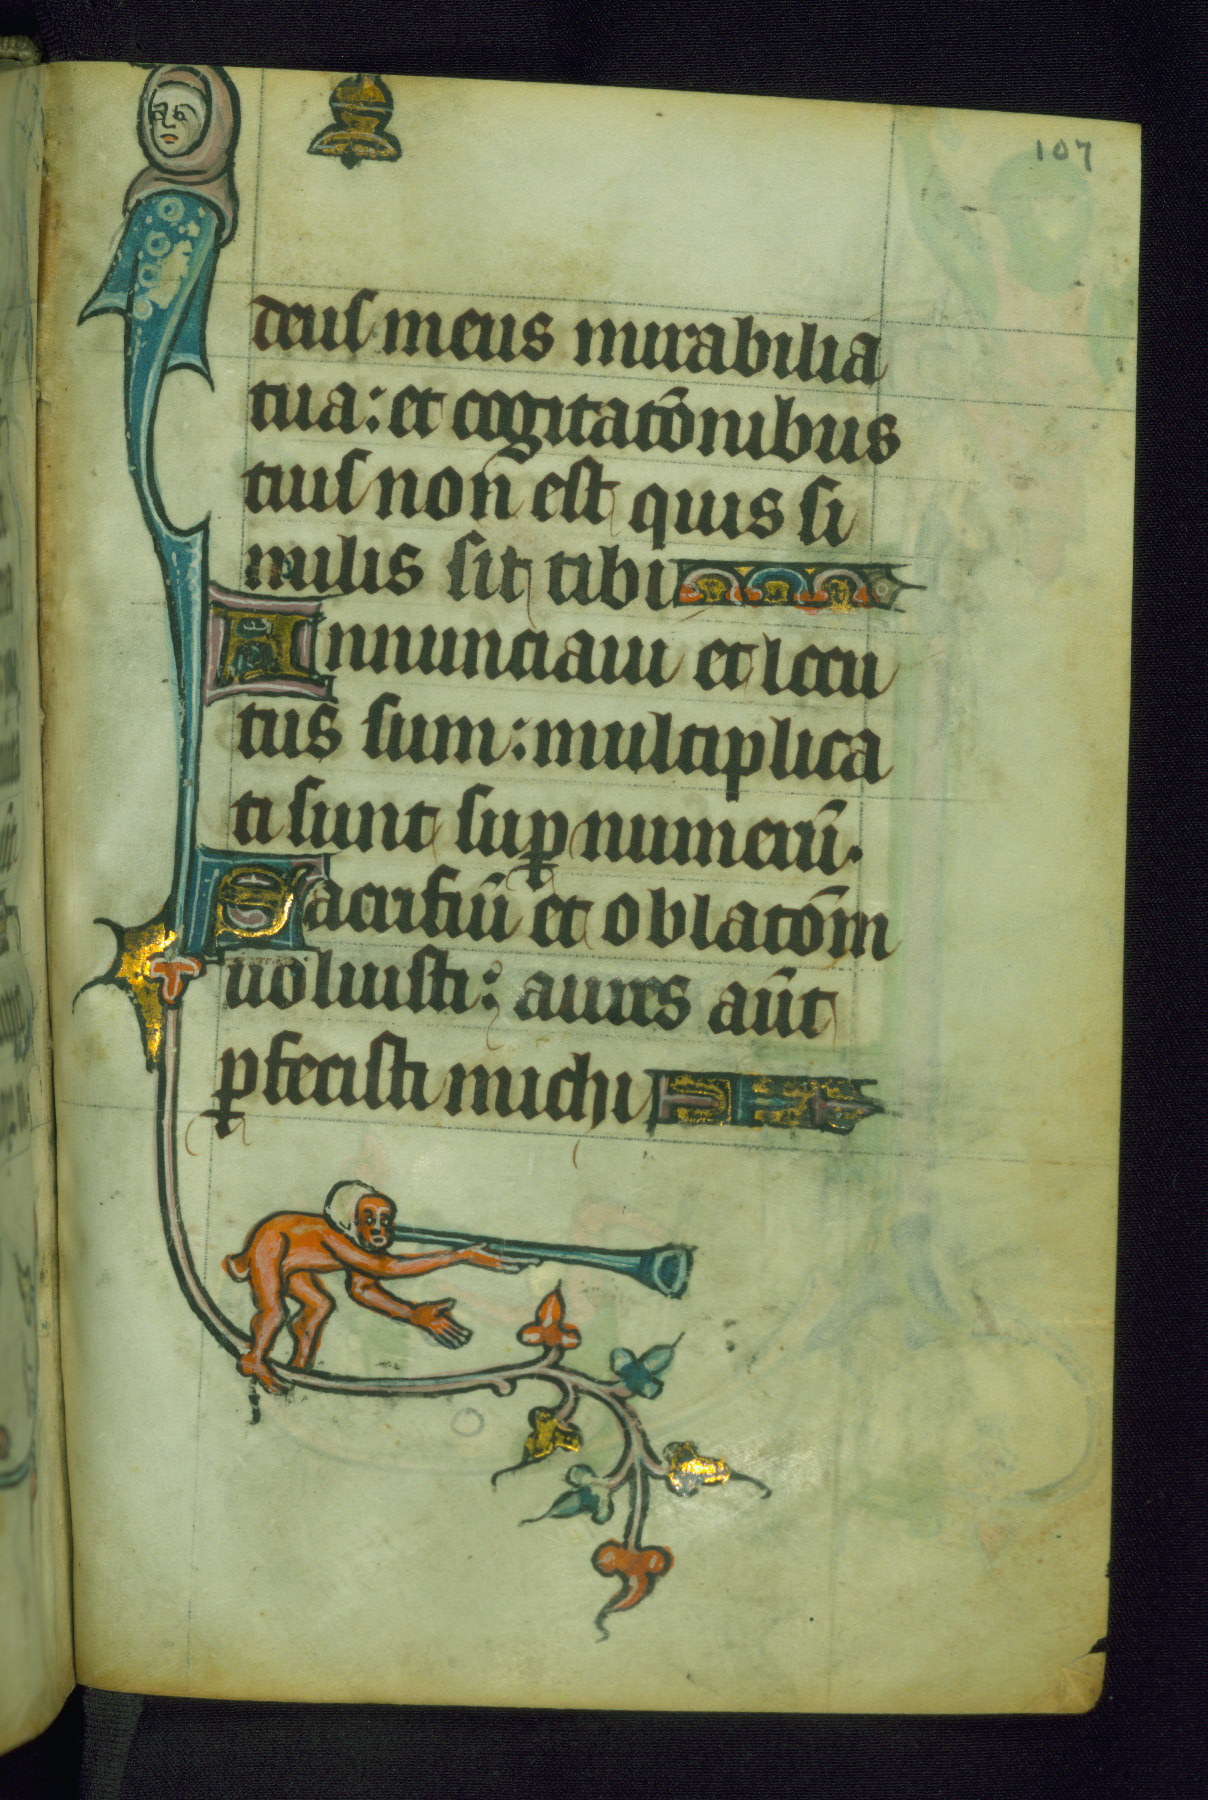 107
deus meus mirabilia
tua: et cogitatōnibus
tuis non est quis si
milis sit tibi
Annunciaui et locu
tus sum: multiplica
ti sunt sup numerū.
Sacrifiū et oblatōm
uoluisti: aures aūt
pfecisti michi